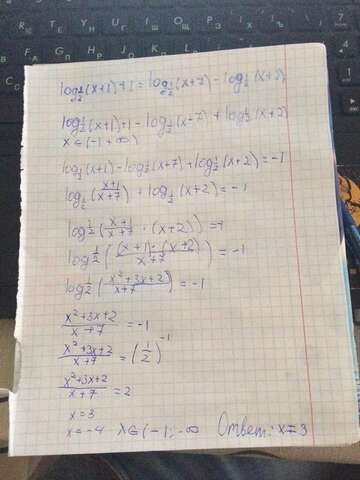 log½(x+1)+1=log½(x+7)-log½(x+2)
log½(x+1)+1-log½(x-7)+log½(x+2)
x∈(-1+∞)
log½(x+1)-log½(x+7)+log½(x+2)=-1
log½(x+1/x+7)+log½(x+2)=-1
log½(x+1/x+7·(x+2))=-1
log½((x+1)·(x+2)/x+7)=-1
log½(x²+3x+2/x+7)=-1
x²+3x+2/x+7=-1
x²+3x+2/x+7=(1/2)⁻¹
x²+3x+2/x+7=2
x=3
x=-4 x∈(-1;-∞ Ответ: x=3